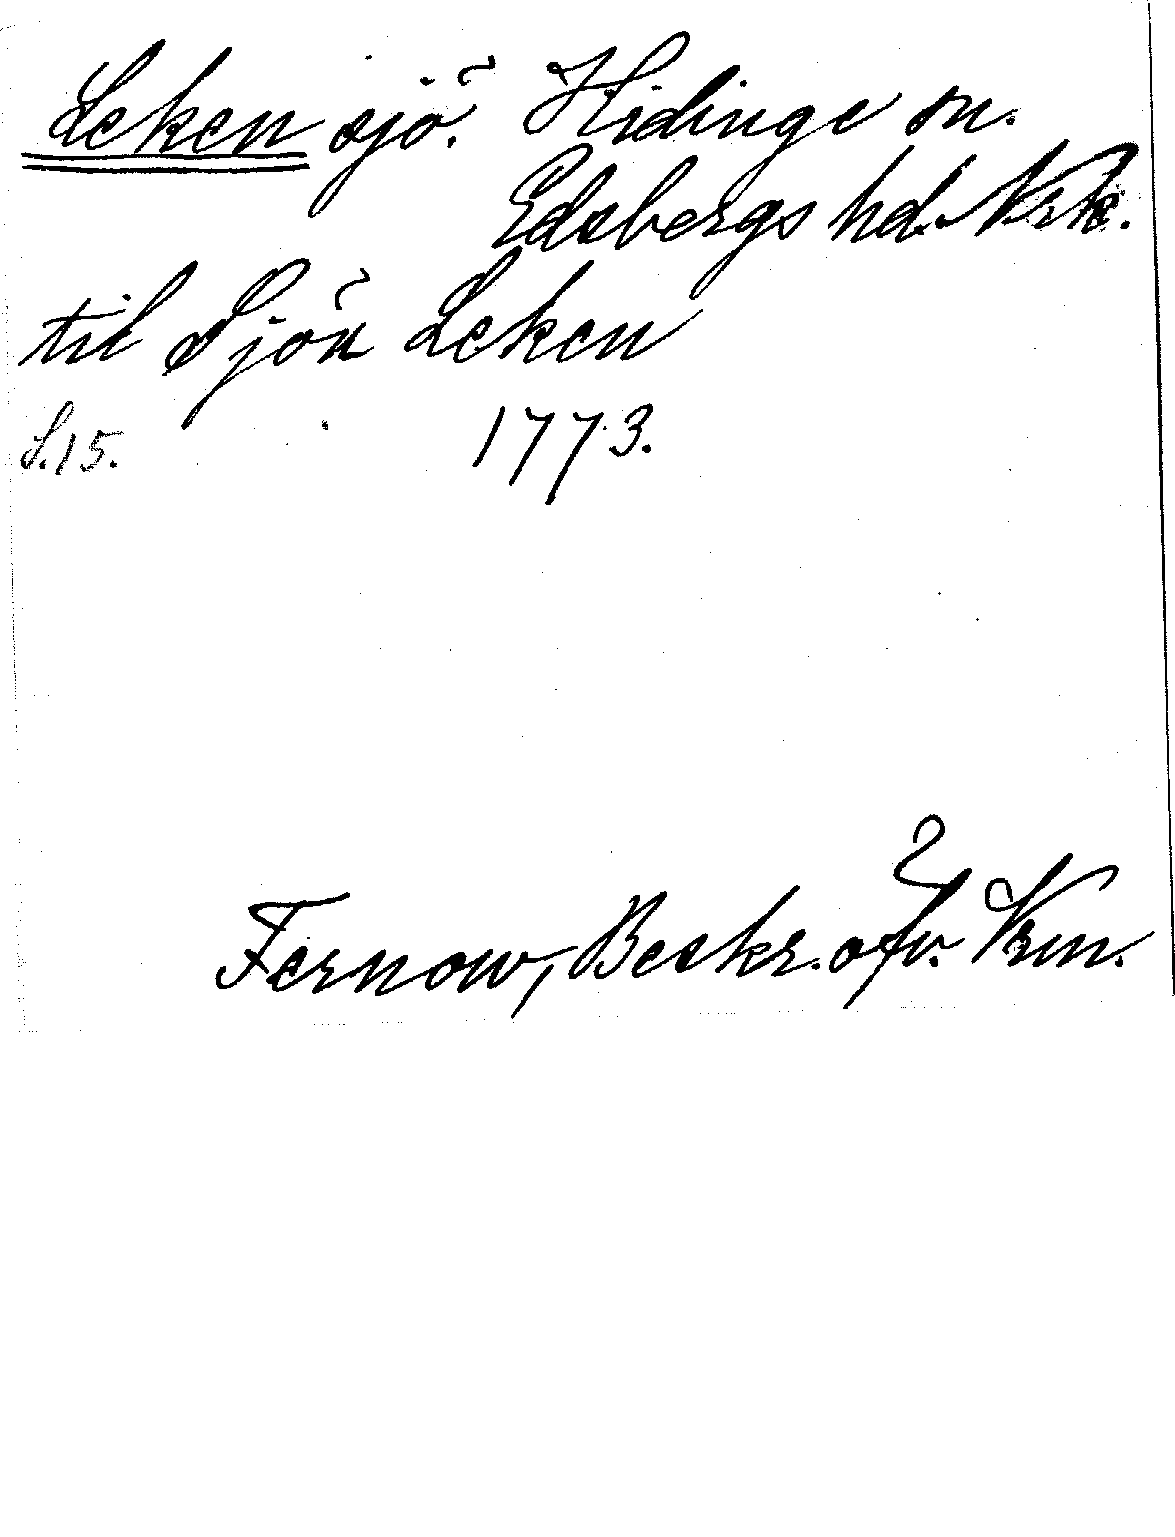 Leken sjö. Hidinge sn.
Edsbergs hd. Nrk.
til Sjön Leken
S.15. 1773.
Fernow, Beskr. öfv. Vrm.